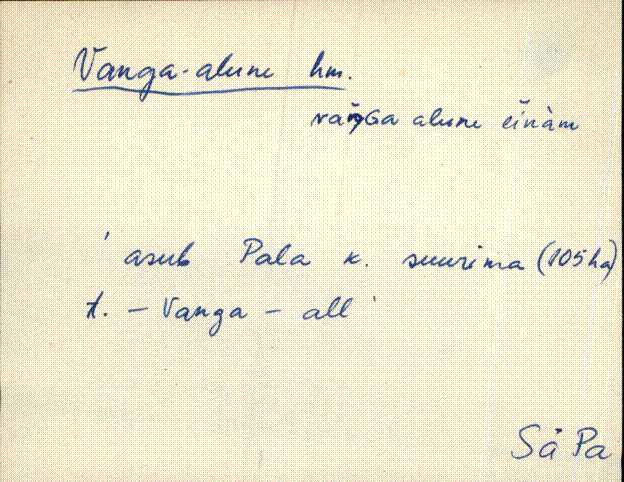 Vanga-alune hm.
vaŋGa alune èinàm
' asub Pala k. suurima (105 ha)
t. - Vanga - all '
Sä Pa